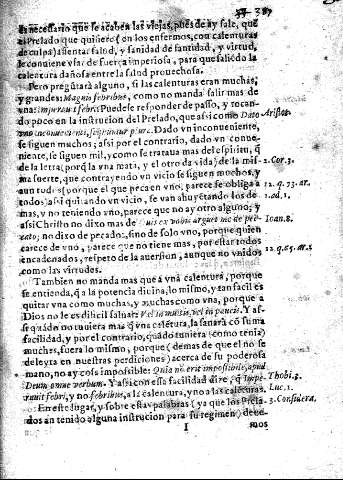 es necessario que se acaben las viejas, pues de ay sale, que
el Prelado que quiere (en los enfermos, con calenturas
de culpa) assentar salud, y sanidad de santidad, y virtud,
le conuiene vsar de fuerça imperiosa, para que saliẽdo la
calentura dañosa entre la salud prouechosa.
Pero preguntará alguno, si las calenturas eran muchas,
y grandes: Magnis febribus, como no manda salir mas de
vna: Imperauit febri? Puedese responder de passo, y tocan
do poco en la instrucion del Prelado, que assi como Dato
vno inconuenienti, sequuntur plura. Dado vn inconueniente,
se siguen muchos; assi por el contrario, dado vn conue-
niente, se siguen mil, y como se trataua mas del espiritu, q̃
de la letra (porq̃ la vna mata, y el otro da vida) de la mis-
ma suerte, que contrayendo vn vicio se siguen muchos, y
aun todos (porque el que peca en vno, parece se obliga a
todos) assi quitando vn vicio, se van ahuyẽtando los de
mas, y no teniendo vno, parece que no ay otro alguno; y
assi Christo no dixo mas de Quis ex vobis arguet me de pec-
cato; no dixo de pecados, sino de solo vno, porque quien
carece de vno, parece que no tiene mas, por estar todos
encadenados, respeto de la auersion, aunque no vnidos
como las virtudes.
Tambien no manda mas que à vna calentura, porque
se entienda, q̃ a la potencia diuina, lo mismo, y tan facil es
quitar vna como muchas, y muchas como vna, porque a
Dios no le es dificil saluar: Vel in multis, vel in paucis. Y as-
si quãdo no tuuiera mas q̃ vna calẽtura, la sanara cõ suma
facilidad, y por el contrario, quãdo tuuiera (como tenia)
muchas, fuera lo mismo, porque (demas de que el no se
deleyta en nuestras perdiciones) acerca de su poderosa
mano, no ay cosa impossible: Quia nõ erit impossibile, apud
Deum omne verbum. Y assi con essa facilidad dize, q̃ Impe-
rauit febri, y no febribus, a la calentura, y no a las calẽturas.
En este lugar, y sobre estas palabras (ya que los Prela-
dos an tenido alguna instrucion para su regimen) deue-
I
mos
Aristot.
2. Cor. 3.
12. q. 73. ar.
1. ad. 1.
Ioan. 8.
12. q. 65. ar. 1
Thobi. 3.
Luc. 1.
3. Consulera.